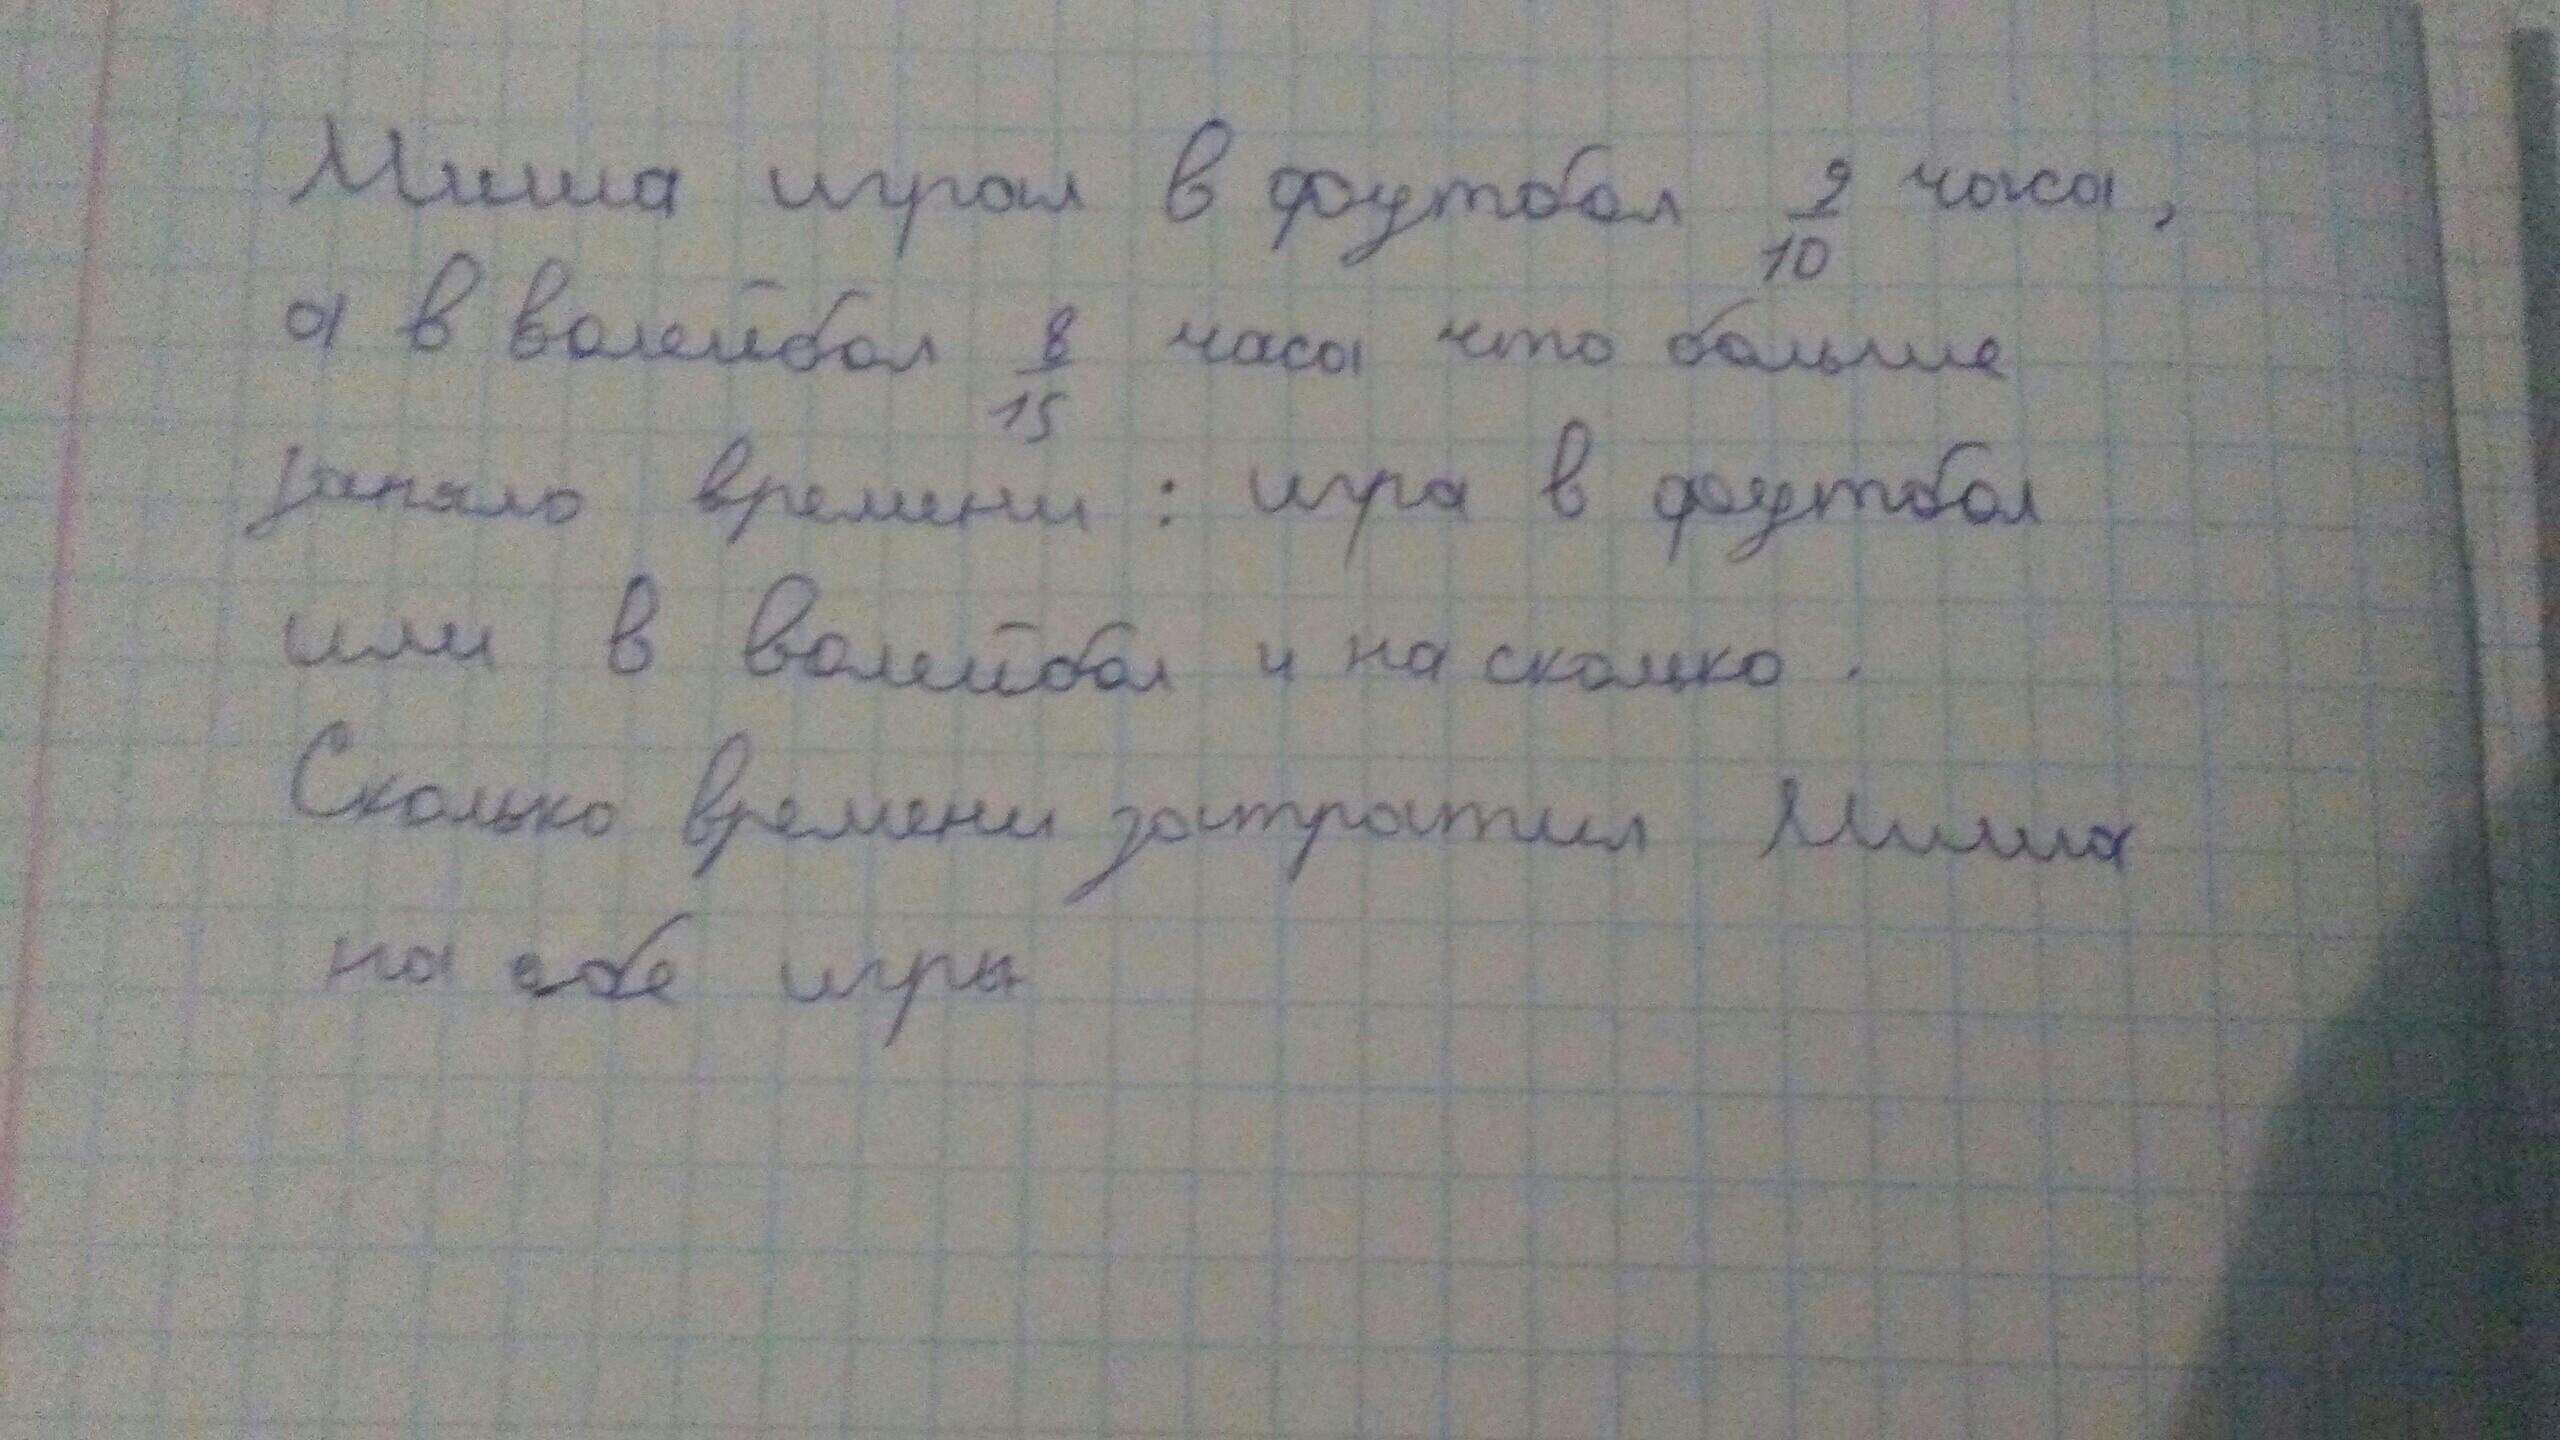 Миша играл в футбол 9/10 часа,
а в волейбол 8/15 часа что больше
заняло времени : игра в футбол
или в волейбол и на сколко .
Сколько времени затратил Миша
на обе игры